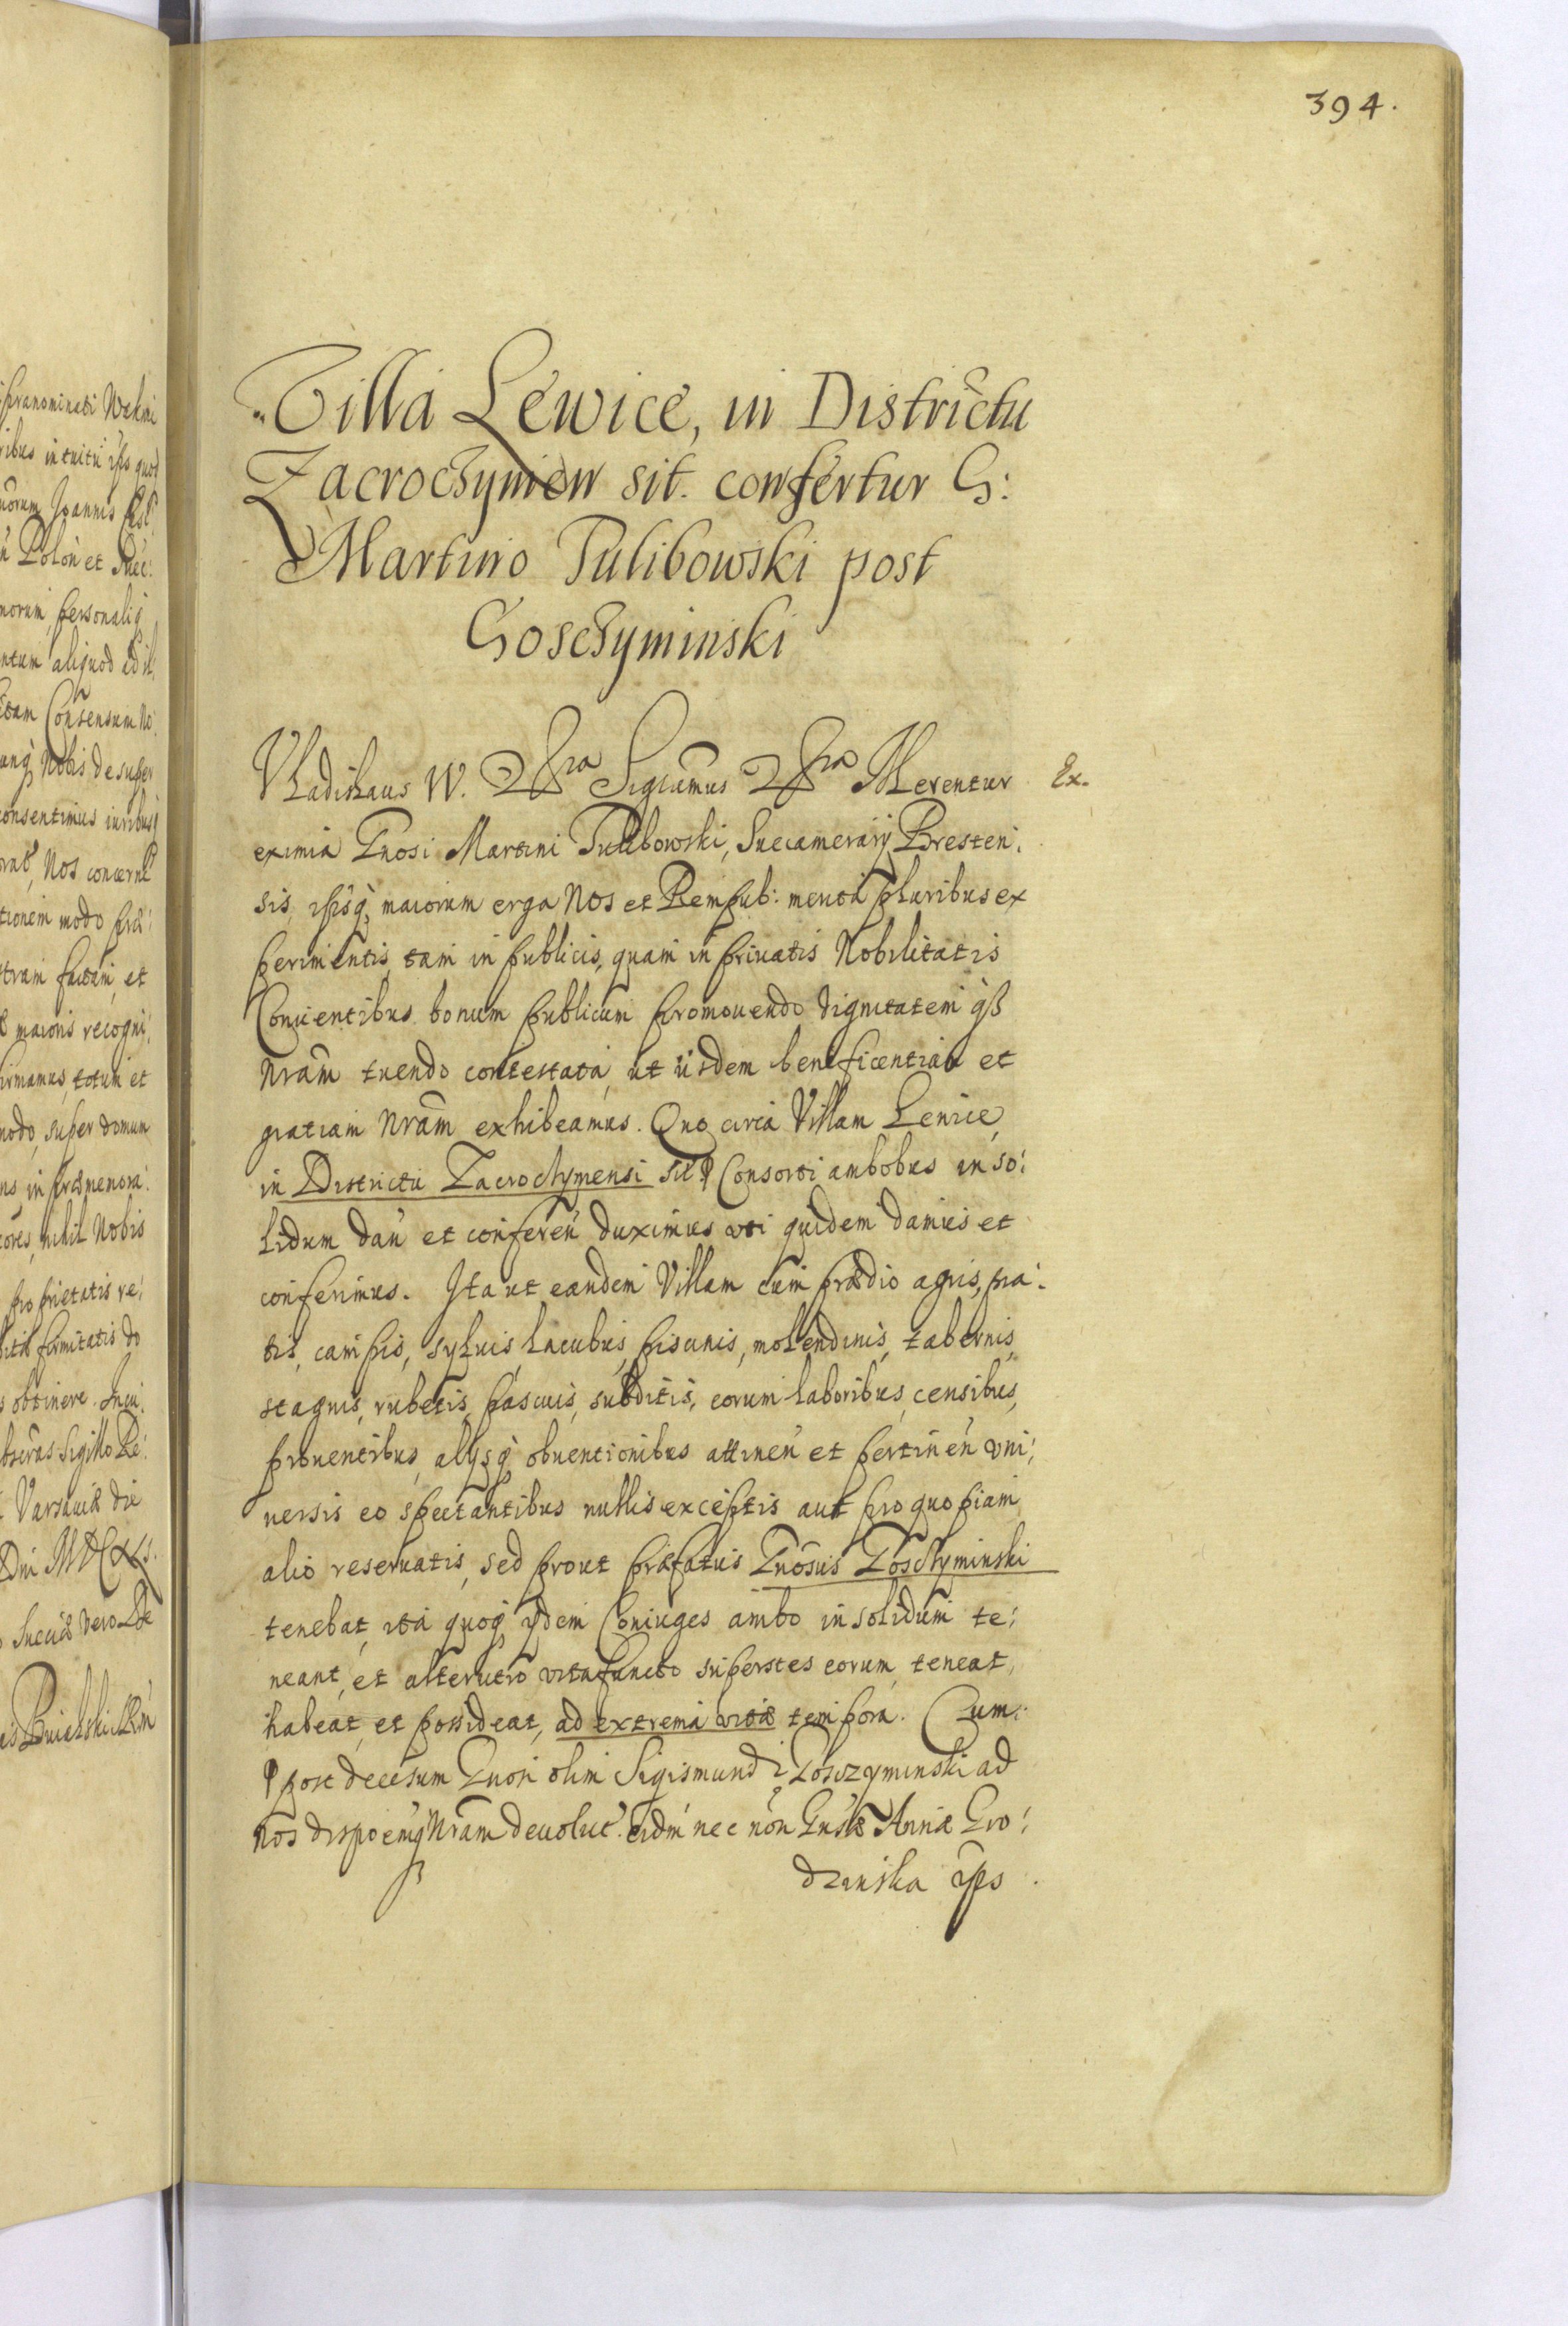 394.
Villa Lewice, in Districtu
Zacroczymen sit. confertur G:
Martino Tulibowski post
Goschyminski
Vladislaus IV. &ra Significamus &ra Merentur Ex.
eximia Gnosi Martini Tulibowski, Succamerarij Bresten:
sis, ipsiq; maiorum erga Nos et Rempub: merita pluribus ex
perimentis, tam in publicis, quam in priuatis Nobilitatis
Conuentibus bonum publicum promouendo dignitatem q3
Nram tuendo contestata, ut ijsdem beneficentiam et
gratiam Nram exhibeamus. Quo circa Villam Lewice,
in Districtu Zacroczymensi sit Consorti ambobus in so:
lidum dan et conferen duximus uti quidem damus et
conferimus. Ita ut eandem Villam cum prædio agris, pra:
tis, campis, syluis, lacubus, piscinis, molendinis, tabernis,
stagnis, rubetis, pascuis, subditis, eorum laboribus, censibus,
prouentibus, alijsq; obuentionibus attinen et pertinen vni:
uersis eo spectantibus nullis exceptis aut pro quopiam
alio reseruatis, sed prout præfatus Gnosus Goschyminski
tenebat, ita quoq; ijdem Coniuges ambo in solidum te:
neant, et alterutro vita functo superstes eorum teneat,
habeat, et possideat, ad extrema vitæ tempora. Cum:
post decesum Gnosi olim Sigismundi Gosczyminski ad
nos dispoemq; Nram deuolut. eidm nec non Gnsæ Annæ Gro:
dzinska ips